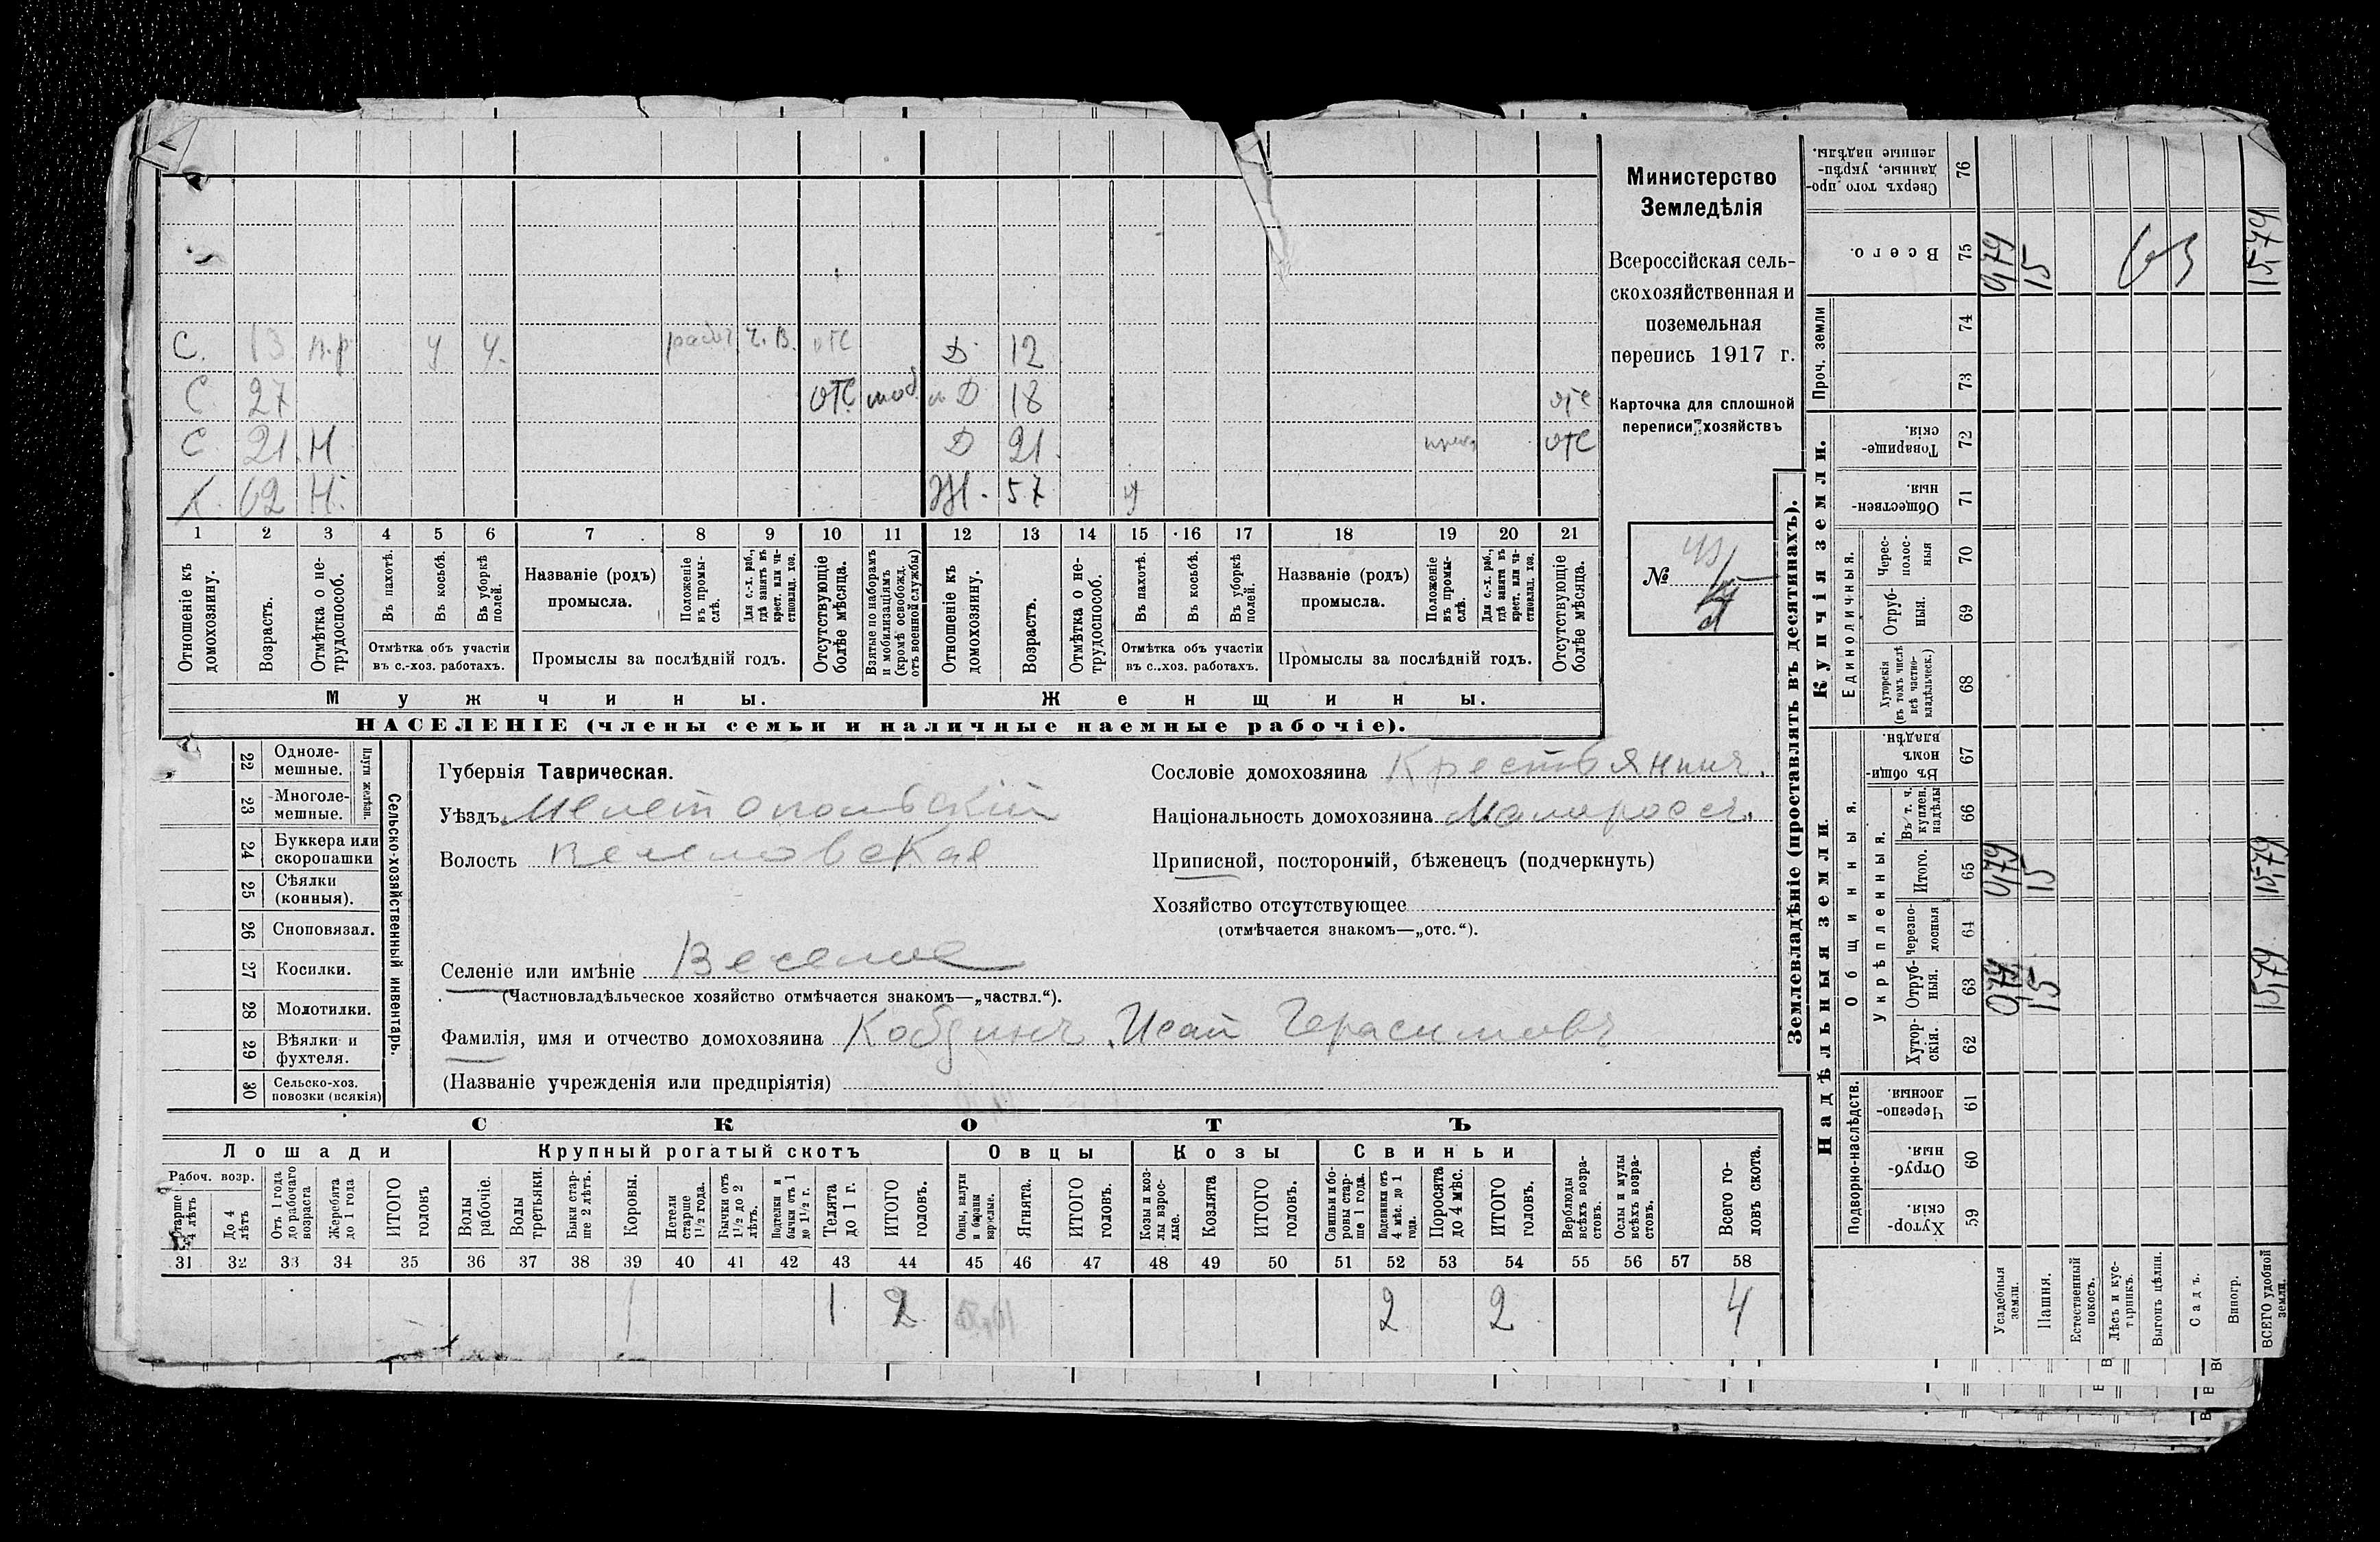 С. 13 н.р. у у. работ. ч. в. отс Д 12
С. 27 отс моб. Д 18 отс
С. 21. Н Д 21. отс
Х. 62 Н. Ж. 57 у
1 2 3 4 5 6 7 8 9 10 11 12 13 14 15 16 17 18 19 20 21
Отношеніе къ домохозяину.
Возрастъ.
Отмѣтка о нетрудоспособ.
Въ пахотѣ.
Въ косьбѣ.
Въ уборкѣ полей.
Отмѣтка объ участіи
въ с.-хоз. работахъ.
Названіе (родъ)
промысла.
Положеніе въ промыслѣ.
Для с.-х. раб., гдѣ занятъ въ крест. или частновлад. хоз.
Промыслы за послѣдній годъ.
Отсутствующіе болѣе мѣсяца.
Взятые по наборамъ и мобилизаціямъ (кромѣ освобожд. отъ военной службы)
Отношеніе къ домохозяину.
Возрастъ.
Отмѣтка о нетрудоспособ.
Въ пахотѣ.
Въ косьбѣ.
Въ уборкѣ полей.
Отмѣтка объ участіи
въ с.-хоз. работахъ.
Названіе (родъ)
промысла.
Положеніе въ промыслѣ.
Для с.-х. раб., гдѣ занята въ крест. или частновлад. хоз.
Промыслы за послѣдній годъ.
Отсутствующіе болѣе мѣсяца.
Мужчины. Женщины.
НАСЕЛЕНІЕ (члены семьи и наличные наемные рабочіе).
Министерство
Земледѣлія
Всероссійская сель-
скохозяйственная и
поземельная
перепись 1917 г.
Карточка для сплошной
переписи хозяйствъ
№
22 Одноле-
мешные.
23 Многоле-
мешные.
Плуги желѣзн.
24 Буккера или
скоропашки
25 Сѣялки
(конныя).
26 Сноповязал.
27 Косилки.
28 Молотилки.
29 Вѣялки и
фухтеля.
30 Сельско-хоз.
повозки (всякія)
Сельско-хозяйственный инвентарь.
Губернія Таврическая.
Уѣздъ Мелитопольскій
Волость Веселовская
Селеніе или имѣніе Веселое
(Частновладѣльческое хозяйство отмѣчается знакомъ—„частвл.“).
Фамилія, имя и отчество домохозяина Кобзинъ Исай Герасимовъ
(Названіе учрежденія или предпріятія)
Сословіе домохозяина Крестьянинъ.
Національность домохозяина Малоросс.
Приписной, посторонній, бѣженецъ (подчеркнуть)
Хозяйство отсутствующее
(отмѣчается знакомъ—„отс.“).
СКОТЪ
Лошади Крупный рогатый скотъ Овцы Козы Свиньи
Рабоч. возр.
Старше 4 лѣтъ
До 4 лѣтъ
Отъ 1 года до рабочаго возраста
Жеребята до 1 года
ИТОГО головъ
Волы рабочіе.
Волы третьяки.
Быки старше 2 лѣтъ.
Коровы.
Нетели старше 1½ года.
Бычки отъ 1½ до 2 лѣтъ.
Подтелки и бычки отъ 1 до 1½ г.
Телята до 1 г.
ИТОГО головъ.
Овцы, валухи и бараны взрослые.
Ягнята.
ИТОГО головъ.
Козы и козлы взрослые.
Козлята
ИТОГО головъ.
Свиньи и боровы старше 1 года.
Подсвинки отъ 4 мѣс. до 1 года.
Поросята до 4 мѣс.
ИТОГО головъ.
Верблюды всѣхъ возрастовъ.
Ослы и мулы всѣхъ возрастовъ.
Всего головъ скота.
31 32 33 34 35 36 37 38 39 40 41 42 43 44 45 46 47 48 49 50 51 52 53 54 55 56 57 58
1 1 2 2 2 4
Землевладѣніе (проставлять въ десятинахъ).
Надѣльныя земли.
Купчія земли.
Проч. земли
Подворно-наслѣдств.
Общинныя.
Укрѣпленныя.
Единоличныя.
Хуторскія. 59
Отрубныя. 60
Черезполосныя 61
Хуторскія. 62
Отрубныя. 63
Черезполосныя 64
Итого. 65
Въ т. ч. куплен. надѣлы 66
Въ общинномъ владѣн. 67
Хуторскія (въ томъ числѣ всѣ частновладѣльческ.) 68
Отрубныя. 69
Чересполосныя 70
Общественныя 71
Товарищескія. 72
73
74
Всего. 75
Сверхъ того проданные, укрѣпленные надѣлы. 76
Усадебныя земли. 0,79 0,79 0,79
Пашня. 15 15 15
Естественный покосъ.
Лѣсъ и кустарникъ.
Выгонъ цѣлин.
Садъ.
Виногр.
ВСЕГО удобной земли. 15,79 15,79 15,79